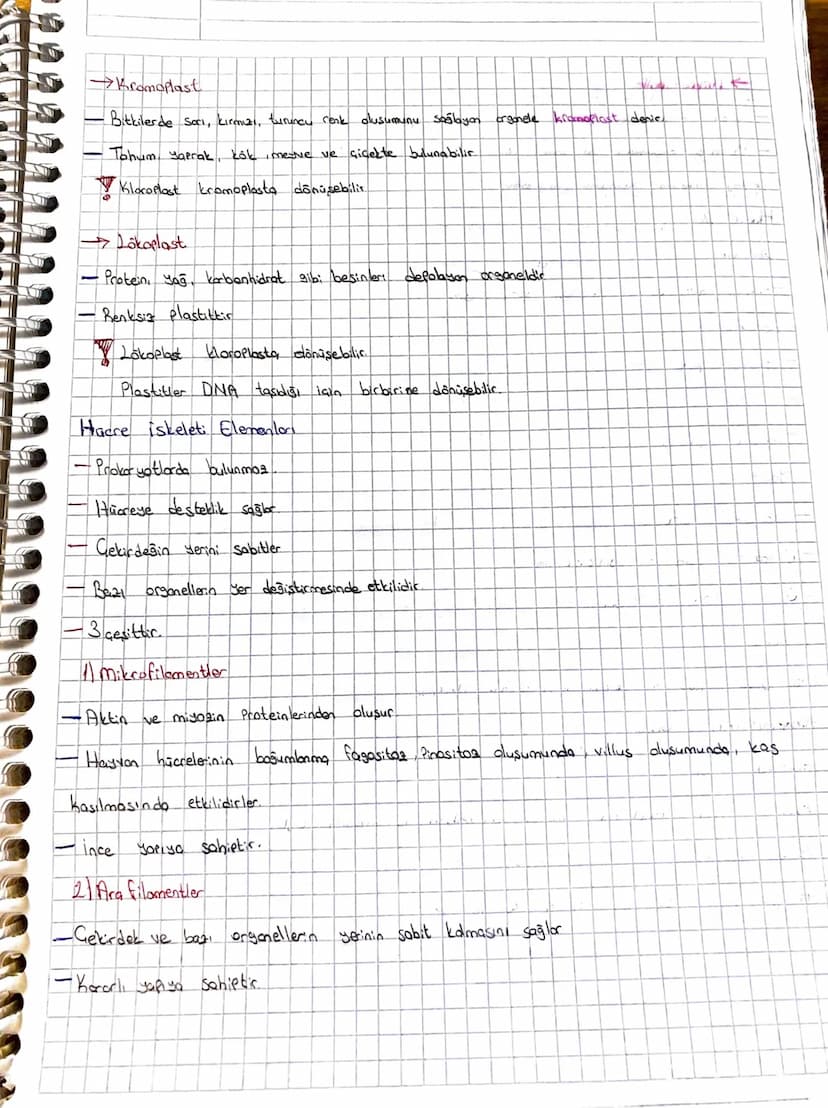 → Kromoplast
— Bitkilerde sarı, kırmızı, turuncu renk oluşumunu sağlayan organele kromoplast denir.
— Tohum, yaprak, kök, meyve ve çiçekte bulunabilir.
! Kloroplast kromoplasta dönüşebilir.
→ Lökoplast
— Protein, yağ, karbonhidrat gibi besinleri depolayan organeldir.
— Renksiz plastittir
! Lökoplast kloroplasta dönüşebilir.
Plastitler DNA taşıdığı için birbirine dönüşebilir.
Hücre iskeleti Elemanları
— Prokaryotlarda bulunmaz.
— Hücreye desteklik sağlar.
— Çekirdeğin yerini sabitler
— Bazı organellerin yer değiştirmesinde etkilidir.
— 3 çeşittir.
1) Mikrofilamentler
— Aktin ve miyozin proteinlerinden oluşur.
— Hayvan hücrelerinin boğumlanma, fagositoz, pinositoz oluşumunda, villus oluşumunda, kas
kasılmasında etkilidirler.
— İnce yapıya sahiptir.
2) Ara filamentler
— Çekirdek ve bazı organellerin yerinin sabit kalmasını sağlar
— Kararlı yapıya sahiptir.